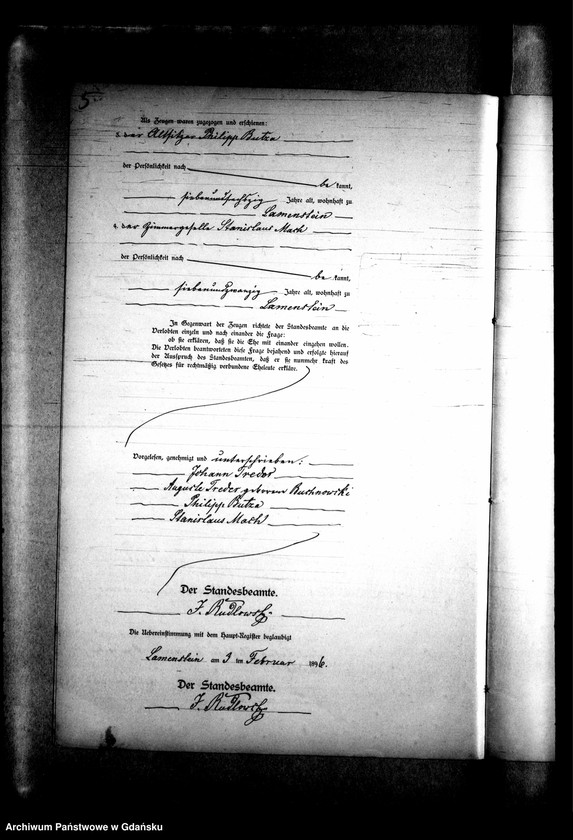 5
Als Zeugen waren zugezogen und erschienen:
3. der Altsitzer Philipp Butza
der Persönlichkeit nach
be kannt,
siebenundsechzig Jahre alt, wohnhaft zu
Lamenstein
4. der Zimmergeselle Stanislaus Mach
der Persönlichkeit nach
be kannt,
siebenundzwanzig Jahre alt, wohnhaft zu
Lamenstein
In Gegenwart der Zeugen richtete der Standesbeamte an die
Verlobten einzeln und nach einander die Frage:
ob sie erklären, daß sie die Ehe mit einander eingehen wollen.
Die Verlobten beantworteten diese Frage bejahend und erfolgte hierauf
der Ausspruch des Standesbeamten, daß er sie nunmehr kraft des
Gesetzes für rechtmäßig verbundene Eheleute erkläre.
Vorgelesen, genehmigt und unterschrieben:
Johann Treder
Auguste Treder geborene Ruchnowski
Philipp Butza
Stanislaus Mach
Der Standesbeamte.
J. Rudlowski
Die Uebereinstimmung mit dem Haupt-Register beglaubigt
Lamenstein am 3 ten Februar 1896.
Der Standesbeamte.
J. Rudlowski
Archiwum Państwowe w Gdańsku